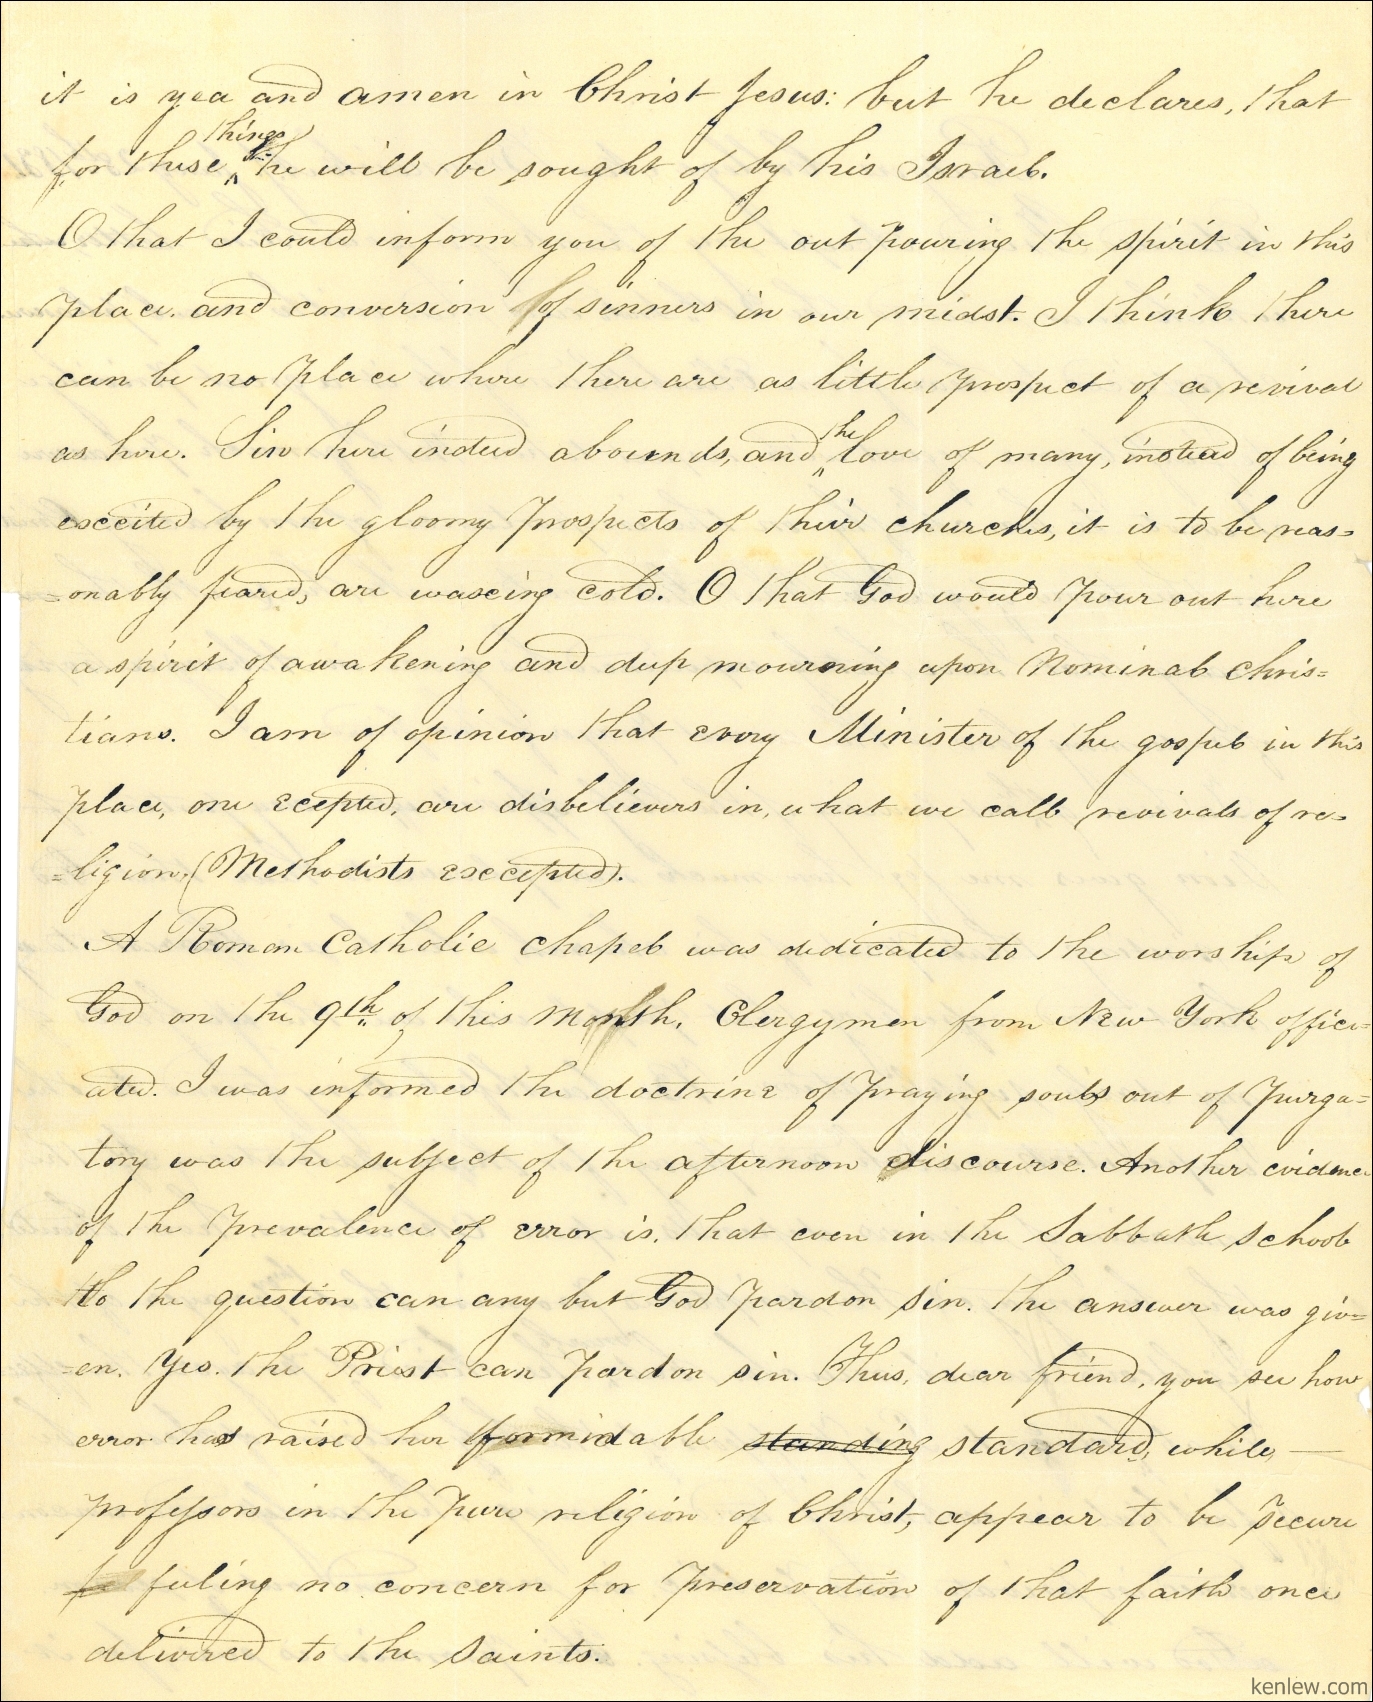 it is yea and amen in Christ Jesus: but he declares, that
things
for these ^ he will be sought of by his Israel.
O that I could inform you of the out pouring the spirit in this
place. and conversion of sinners in our midst. I think there
can be no place where there are as little prospect of a revival
as here. Sin here indeed abounds, and ^ the love of many, instead of being
exceited by the gloomy prospects of their churches, it is to be reas=
=onably feared, are waxeing cold. O that God would pour out here
a spirit of awakening and deep mourning upon Nominal Chris=
tians. I am of opinion that every Minister of the gospel in this
place, one ecepted, are disbelievers in, what we call revivals of re=
=ligion, (Methodists excepted).
A Roman Catholic Chapel was dedicated to the worship of
God on the 9th of this Month. Clergymen from New York offici=
ated. I was informed the doctrine of praying souls out of Purga=
tory was the subject of the afternoon discourse. Another evidence
of the prevalence of error is, that even in the Sabbath School
to the question can any but God pardon sin. the answer was giv=
=en. Yes. the Priest can pardon sin. Thus, dear friend, you see how
error has raised her formidable standing standard, while —
professors in the pure religion of Christ, appear to be secure
feeling no concern for preservation of that faith once
delivered to the Saints.
kenlew.com